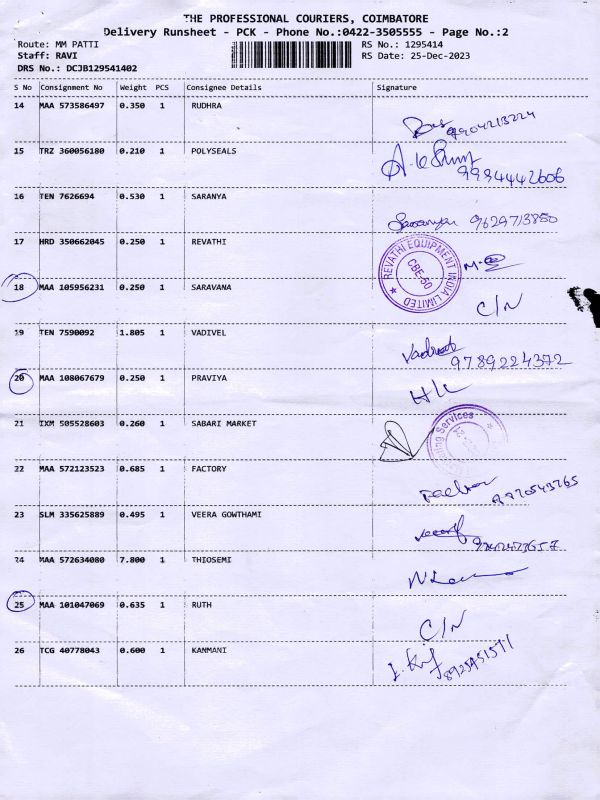 THE PROFESSIONAL COURIERS, COIMBATORE
Delivery Runsheet - PCK - Phone No.:0422-3505555 - Page No.:2
Route: MM PATTI RS No.: 1295414
Staff: RAVI RS Date: 25-Dec-2023
DRS No.: DCJB129541402
S No Consignment No Weight PCS Consignee Details Signature
14 MAA 573586497 0.350 1 RUDHRA
15 TRZ 360056180 0.210 1 POLYSEALS
9984442606
16 TEN 7626694 0.530 1 SARANYA
Saranya 9629713850
17 HRD 350662045 0.250 1 REVATHI
REVATHI EQUIPMENT INDIA LIMITED
CBE-50
18 MAA 105956231 0.250 1 SARAVANA
C/N
19 TEN 7590092 1.805 1 VADIVEL
9789224372
20 MAA 108067679 0.250 1 PRAVIYA
21 IXM 505528603 0.260 1 SABARI MARKET
Services
22 MAA 572123523 0.685 1 FACTORY
23 SLM 335625889 0.495 1 VEERA GOWTHAMI
24 MAA 572634080 7.800 1 THIOSEMI
25 MAA 101047069 0.635 1 RUTH
C/N
26 TCG 40778043 0.600 1 KANMANI